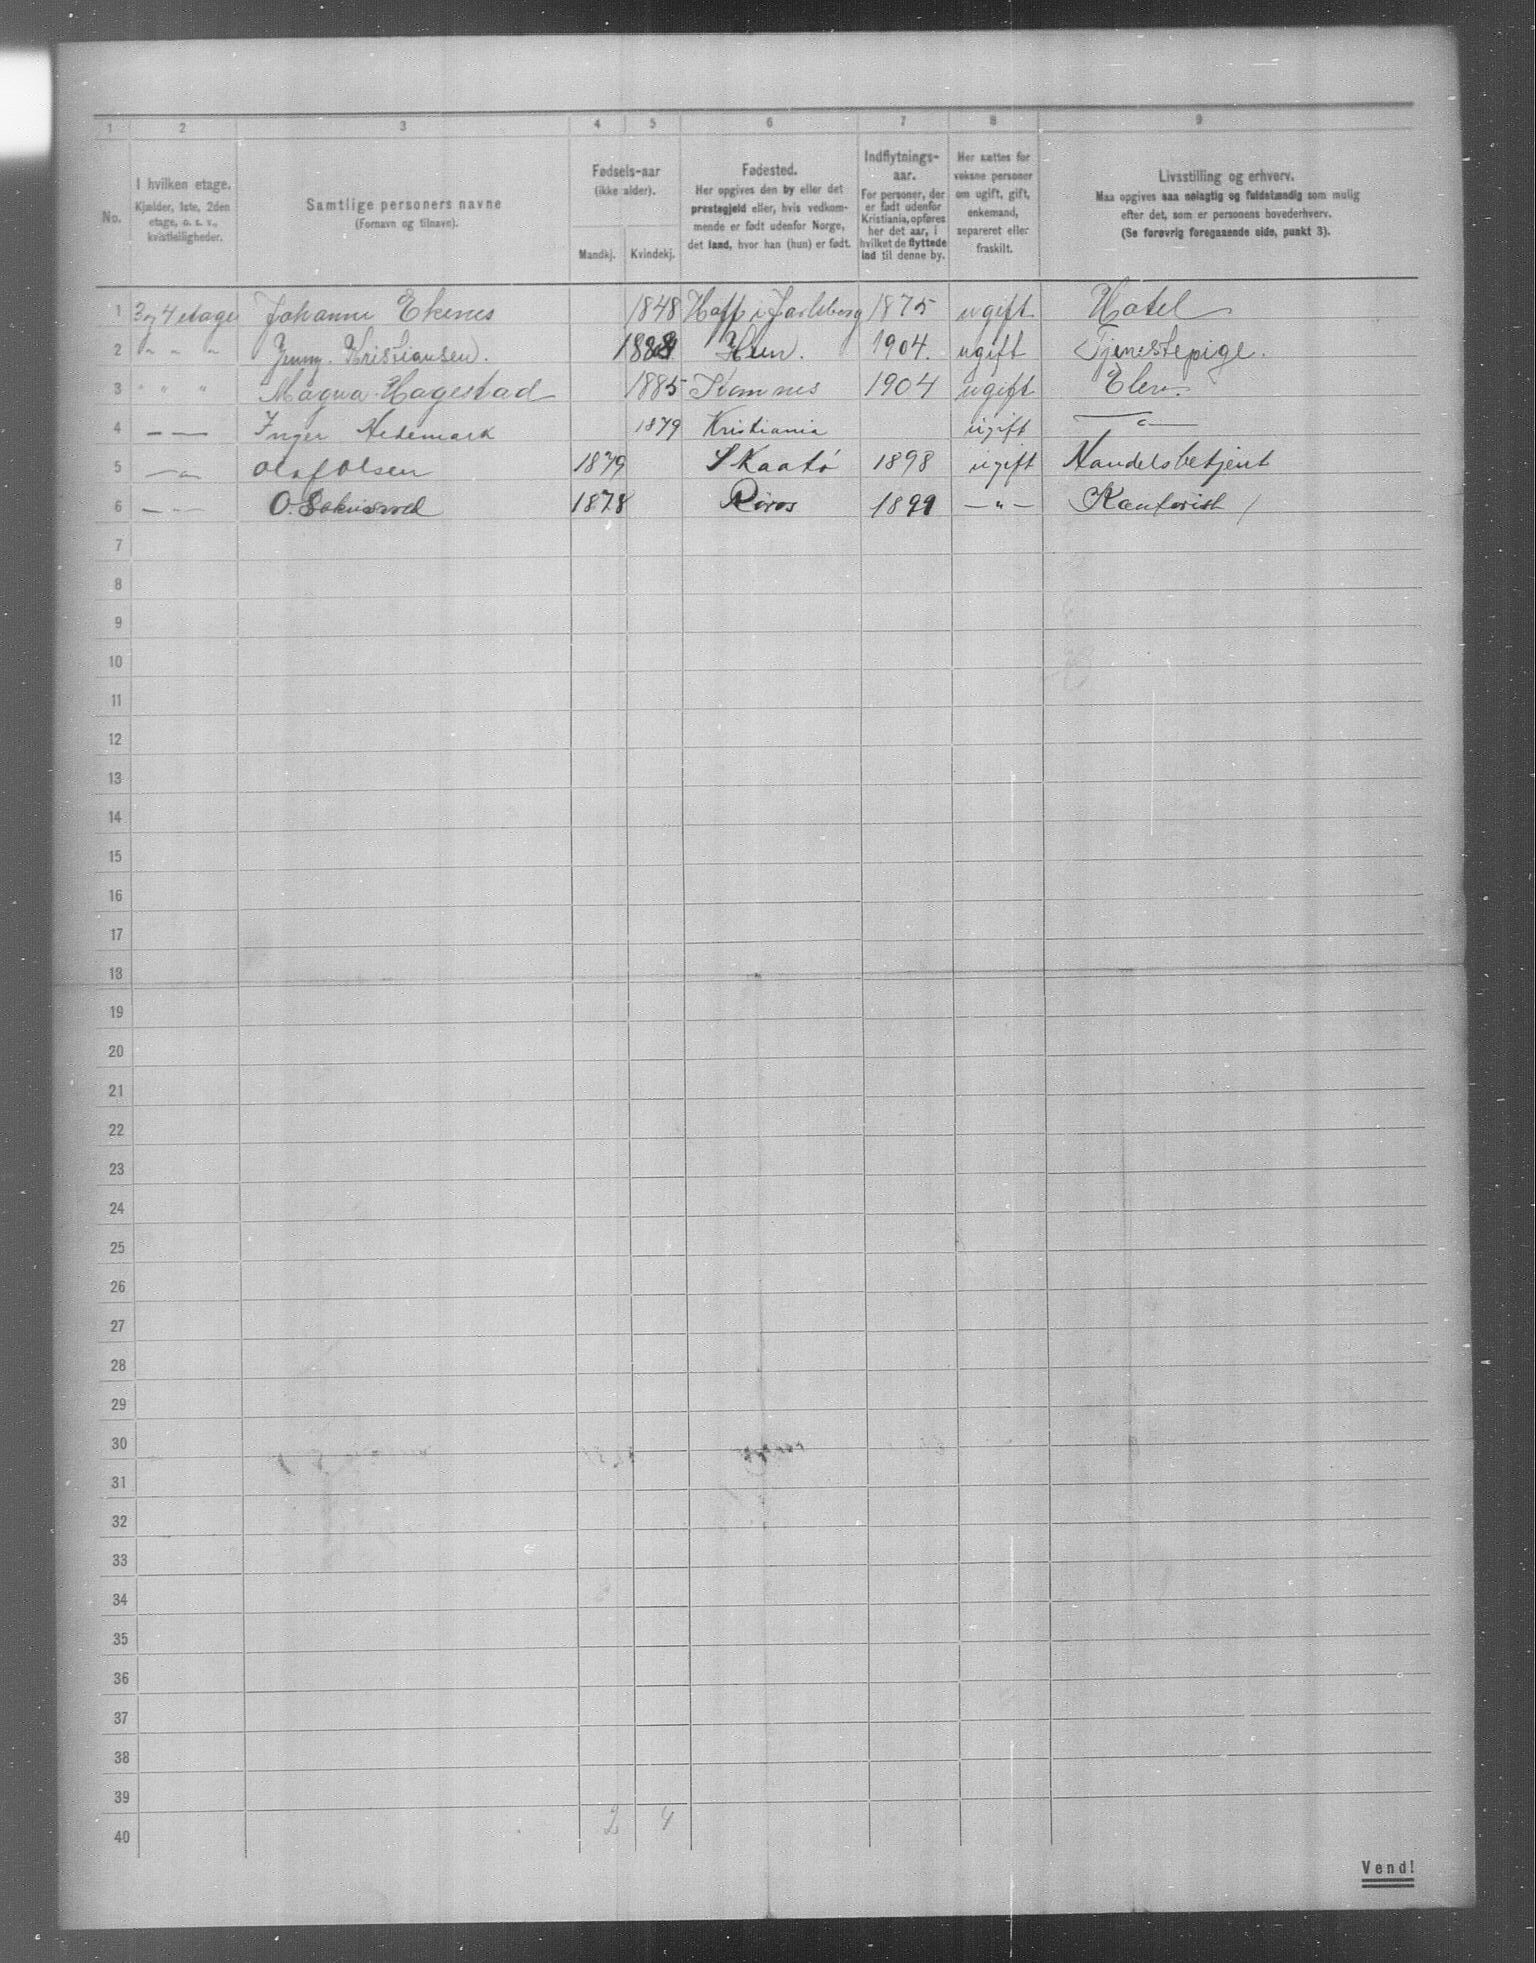 1 2 3 4 5 6 7 8 9
No.
I hvilken etage.
Kjælder, 1ste, 2den
etage, o. s. v.,
kvistleiligheder.
Samtlige personers navne
(Fornavn og tilnavn).
Fødsels-aar
(ikke alder).
Mandkj. Kvindekj.
Fødested.
Her opgives den by eller det
prestegjeld eller, hvis vedkom-
mende er født udenfor Norge,
det land, hvor han (hun) er født.
Indflytnings-
aar.
For personer, der
er født udenfor
Kristiania, opføres
her det aar, i
hvilket de flyttede
ind til denne by.
Her sættes for
voksne personer
om ugift, gift,
enkemand,
separeret eller
fraskilt.
Livsstilling og erhverv.
Maa opgives saa nøiagtig og fuldstændig som mulig
efter det, som er personens hovederhverv.
(Se forøvrig foregaaende side, punkt 3).
1 3 og 4 etage Johanne Ekenes 1848 Hoff i Jarlsberg 1875 ugift Hotel
2 " " " Jenny Kristiansen. 1904. ugift Tjenestepige.
3 " " " Magna Hagestad 1885 1904 ugift Elev.
4 — — Inger Hedemark 1879 Kristiania ugift — " —
5 — " Olaf Olsen 1879 Skaatø 1898 ugift Handelsbetjent
6 — " — O. 1878 Røros 1899 — " — Kontorist
7
8
9
10
11
12
13
14
15
16
17
18
19
20
21
22
23
24
25
26
27
28
29
30
31
32
33
34
35
36
37
38
39
40 2 4
Vend!